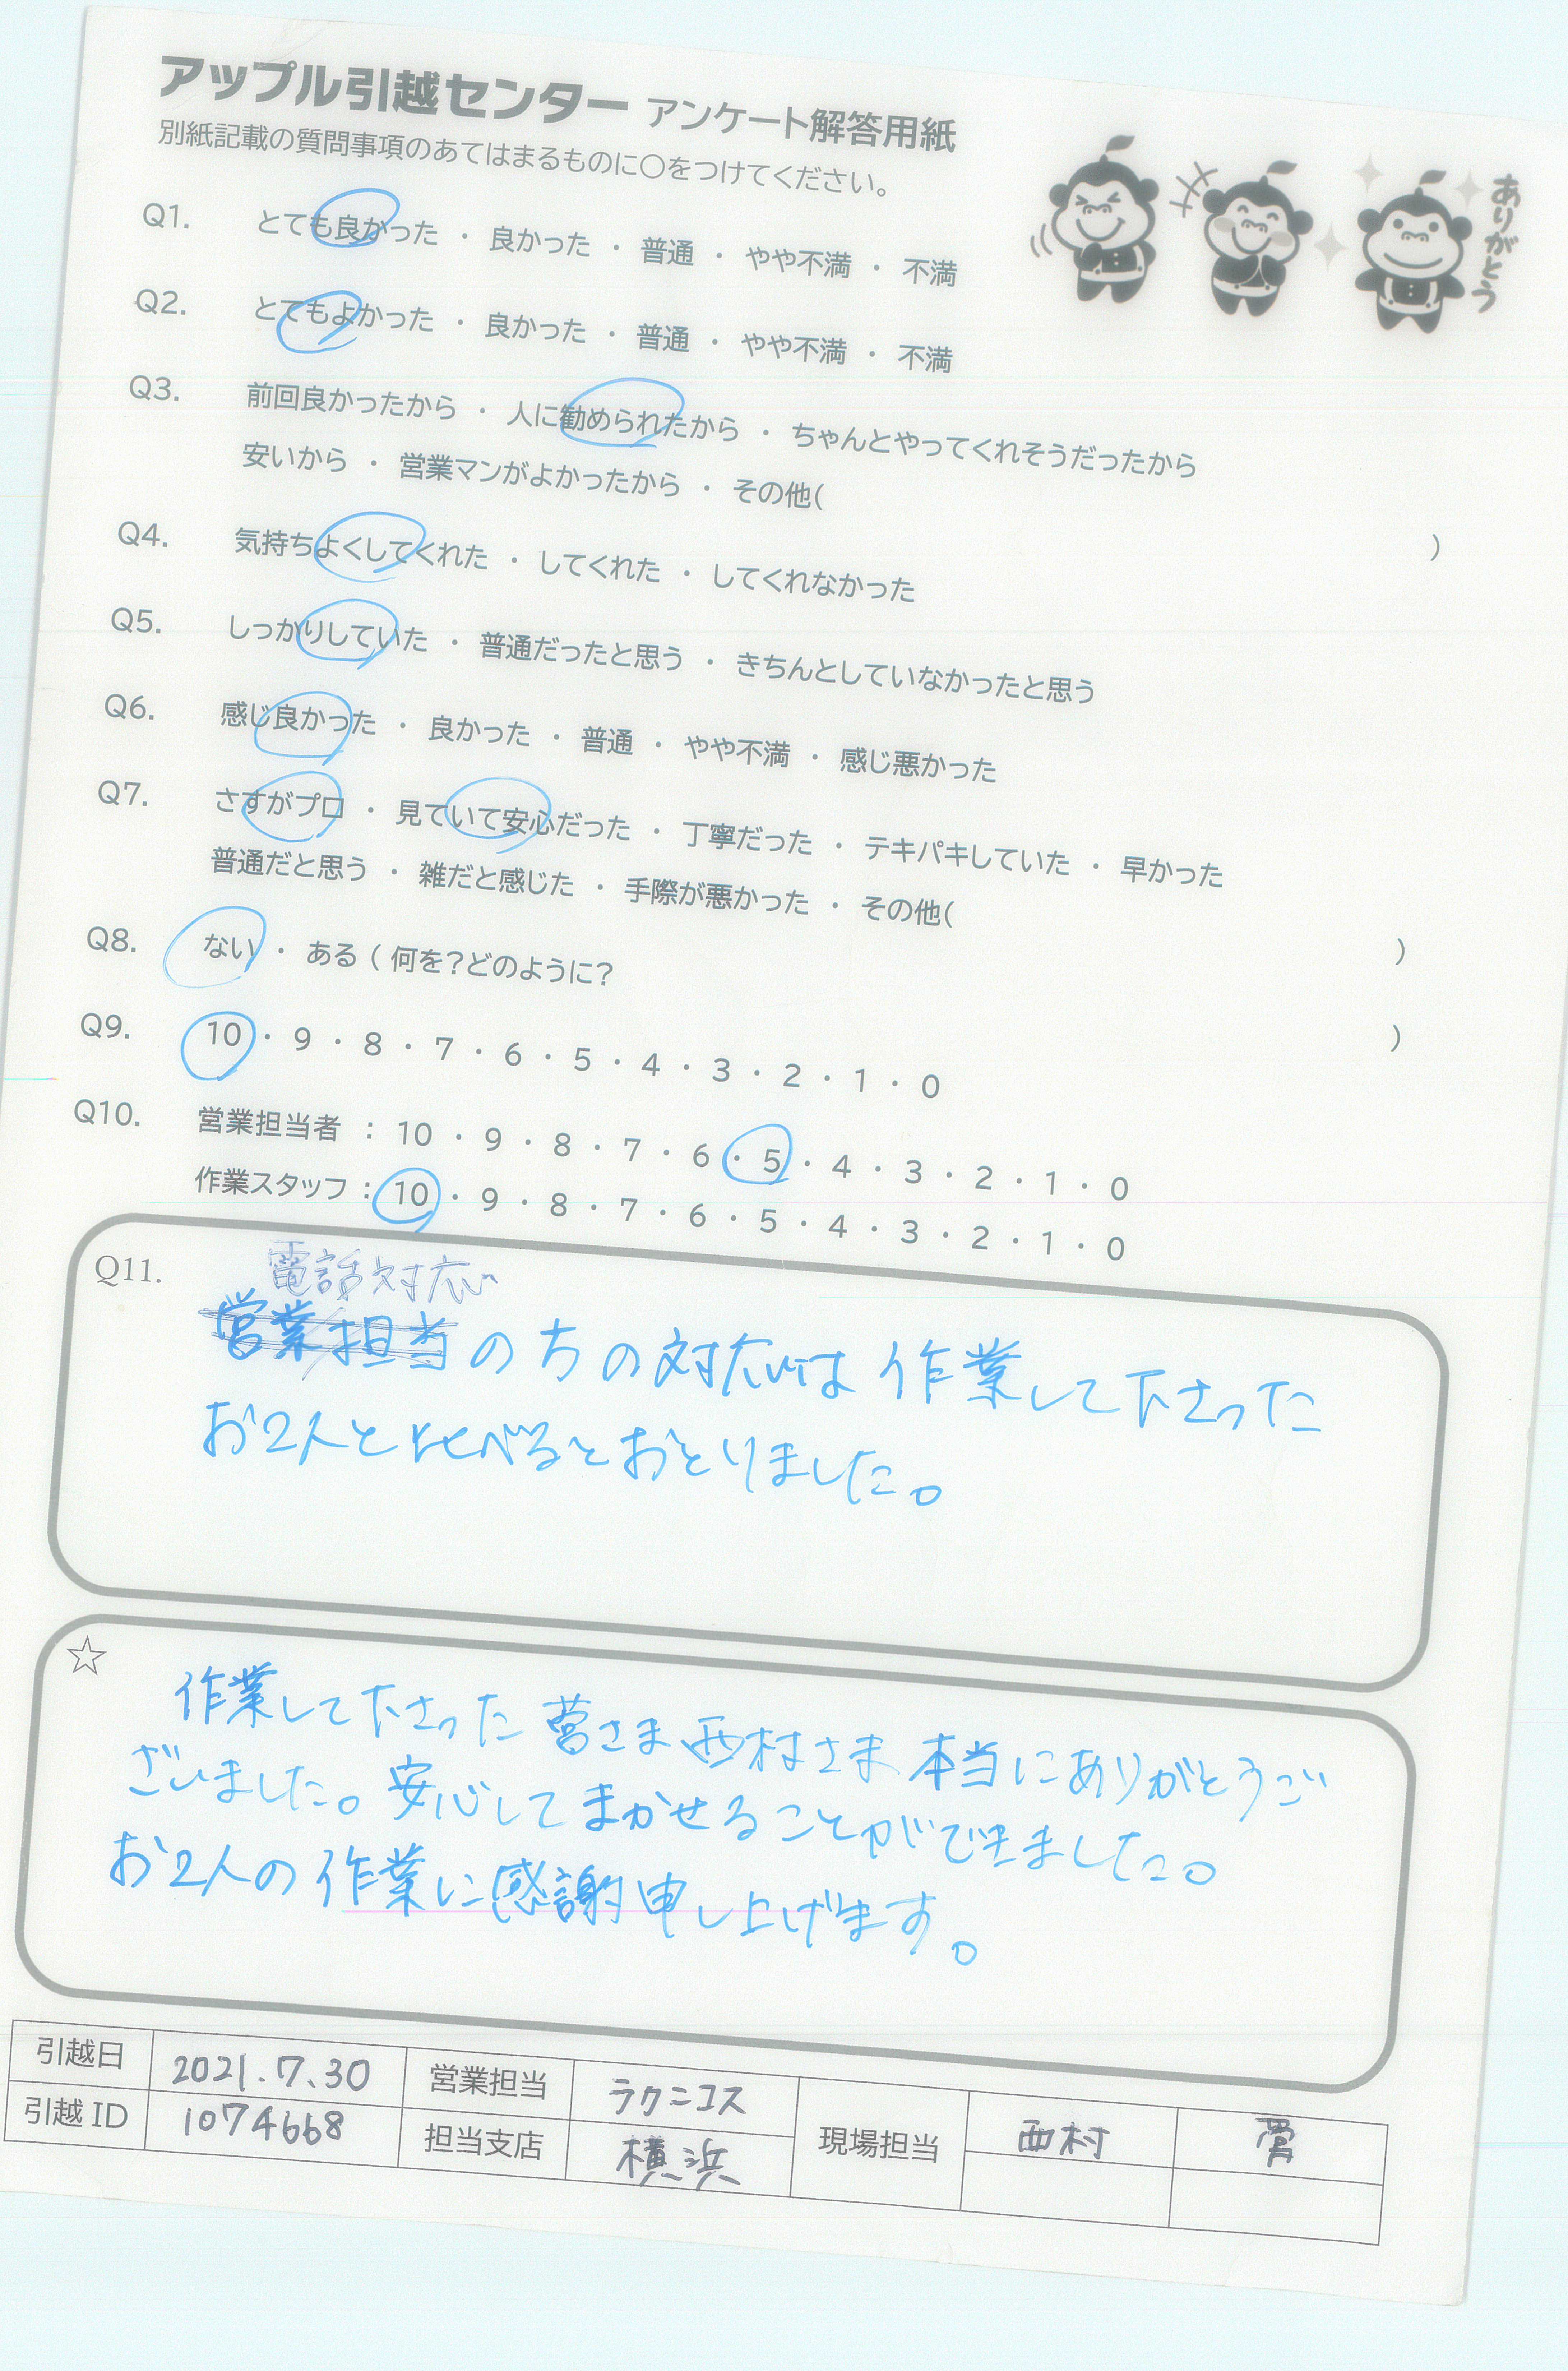 アップル引越センター アンケート解答用紙
別紙記載の質問事項のあてはまるものに○をつけてください。
ありがとう
Q1. とても良かった ・ 良かった ・ 普通 ・ やや不満 ・ 不満
Q2. とてもよかった ・ 良かった ・ 普通 ・ やや不満 ・ 不満
Q3. 前回良かったから ・ 人に勧められたから ・ ちゃんとやってくれそうだったから
安いから ・ 営業マンがよかったから ・ その他( )
Q4. 気持ちよくしてくれた ・ してくれた ・ してくれなかった
Q5. しっかりしていた ・ 普通だったと思う ・ きちんとしていなかったと思う
Q6. 感じ良かった ・ 良かった ・ 普通 ・ やや不満 ・ 感じ悪かった
Q7. さすがプロ ・ 見ていて安心だった ・ 丁寧だった ・ テキパキしていた ・ 早かった
普通だと思う ・ 雑だと感じた ・ 手際が悪かった ・ その他( )
Q8. ない ・ ある ( 何を?どのように? )
Q9. 10 ・ 9 ・ 8 ・ 7 ・ 6 ・ 5 ・ 4 ・ 3 ・ 2 ・ 1 ・ 0
Q10. 営業担当者 : 10 ・ 9 ・ 8 ・ 7 ・ 6 ・ 5 ・ 4 ・ 3 ・ 2 ・ 1 ・ 0
作業スタッフ : 10 ・ 9 ・ 8 ・ 7 ・ 6 ・ 5 ・ 4 ・ 3 ・ 2 ・ 1 ・ 0
Q11. 電話対応
営業担当の方の対応は作業して下さった
お2人と比べるとおとりました。
☆
作業して下さった菅さま西村さま本当にありがとうご
ざいました。安心してまかせることができました。
お2人の作業に感謝申し上げます。
引越日 2021.7.30 営業担当 ラクニコス 現場担当 西村 菅
引越ID 1074668 担当支店 横浜